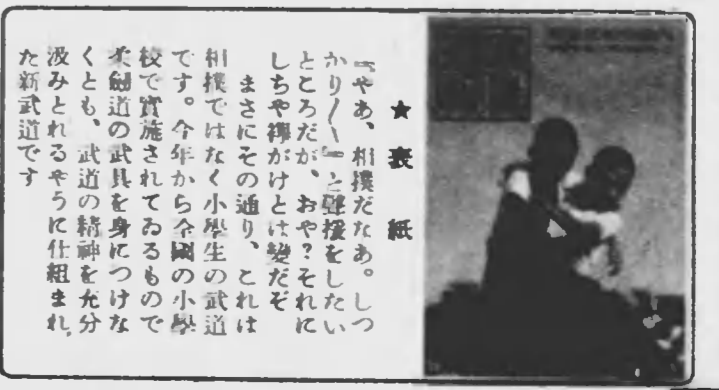 ★表紙
『やあ、相撲だなあ。しつ
かり〳〵』と聲援をしたい
ところだが、おや?それに
しちや襷がけとは變だぞ
まさにその通り、これは
相撲ではなく小學生の武道
です。今年から全國の小學
校で實施されてゐるもので
柔劍道の武具を身につけな
くとも、武道の精神を充分
汲みとれるやうに仕組まれ
た新武道です